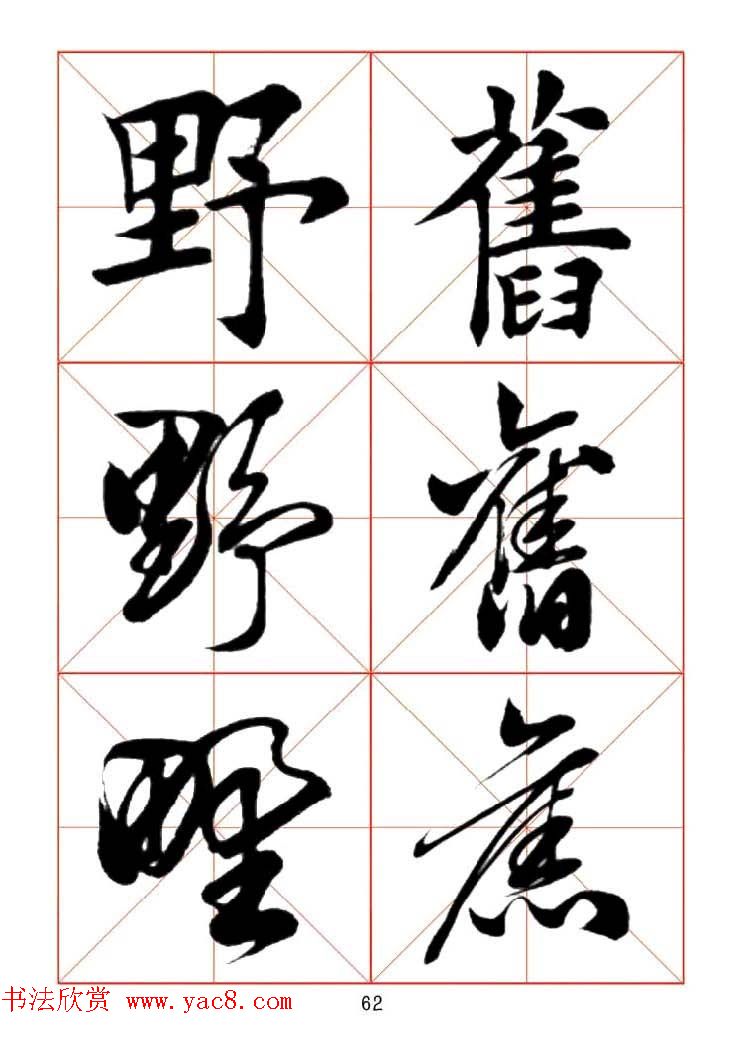 野 舊
野 舊
野 舊
书法欣赏 www.yac8.com 62